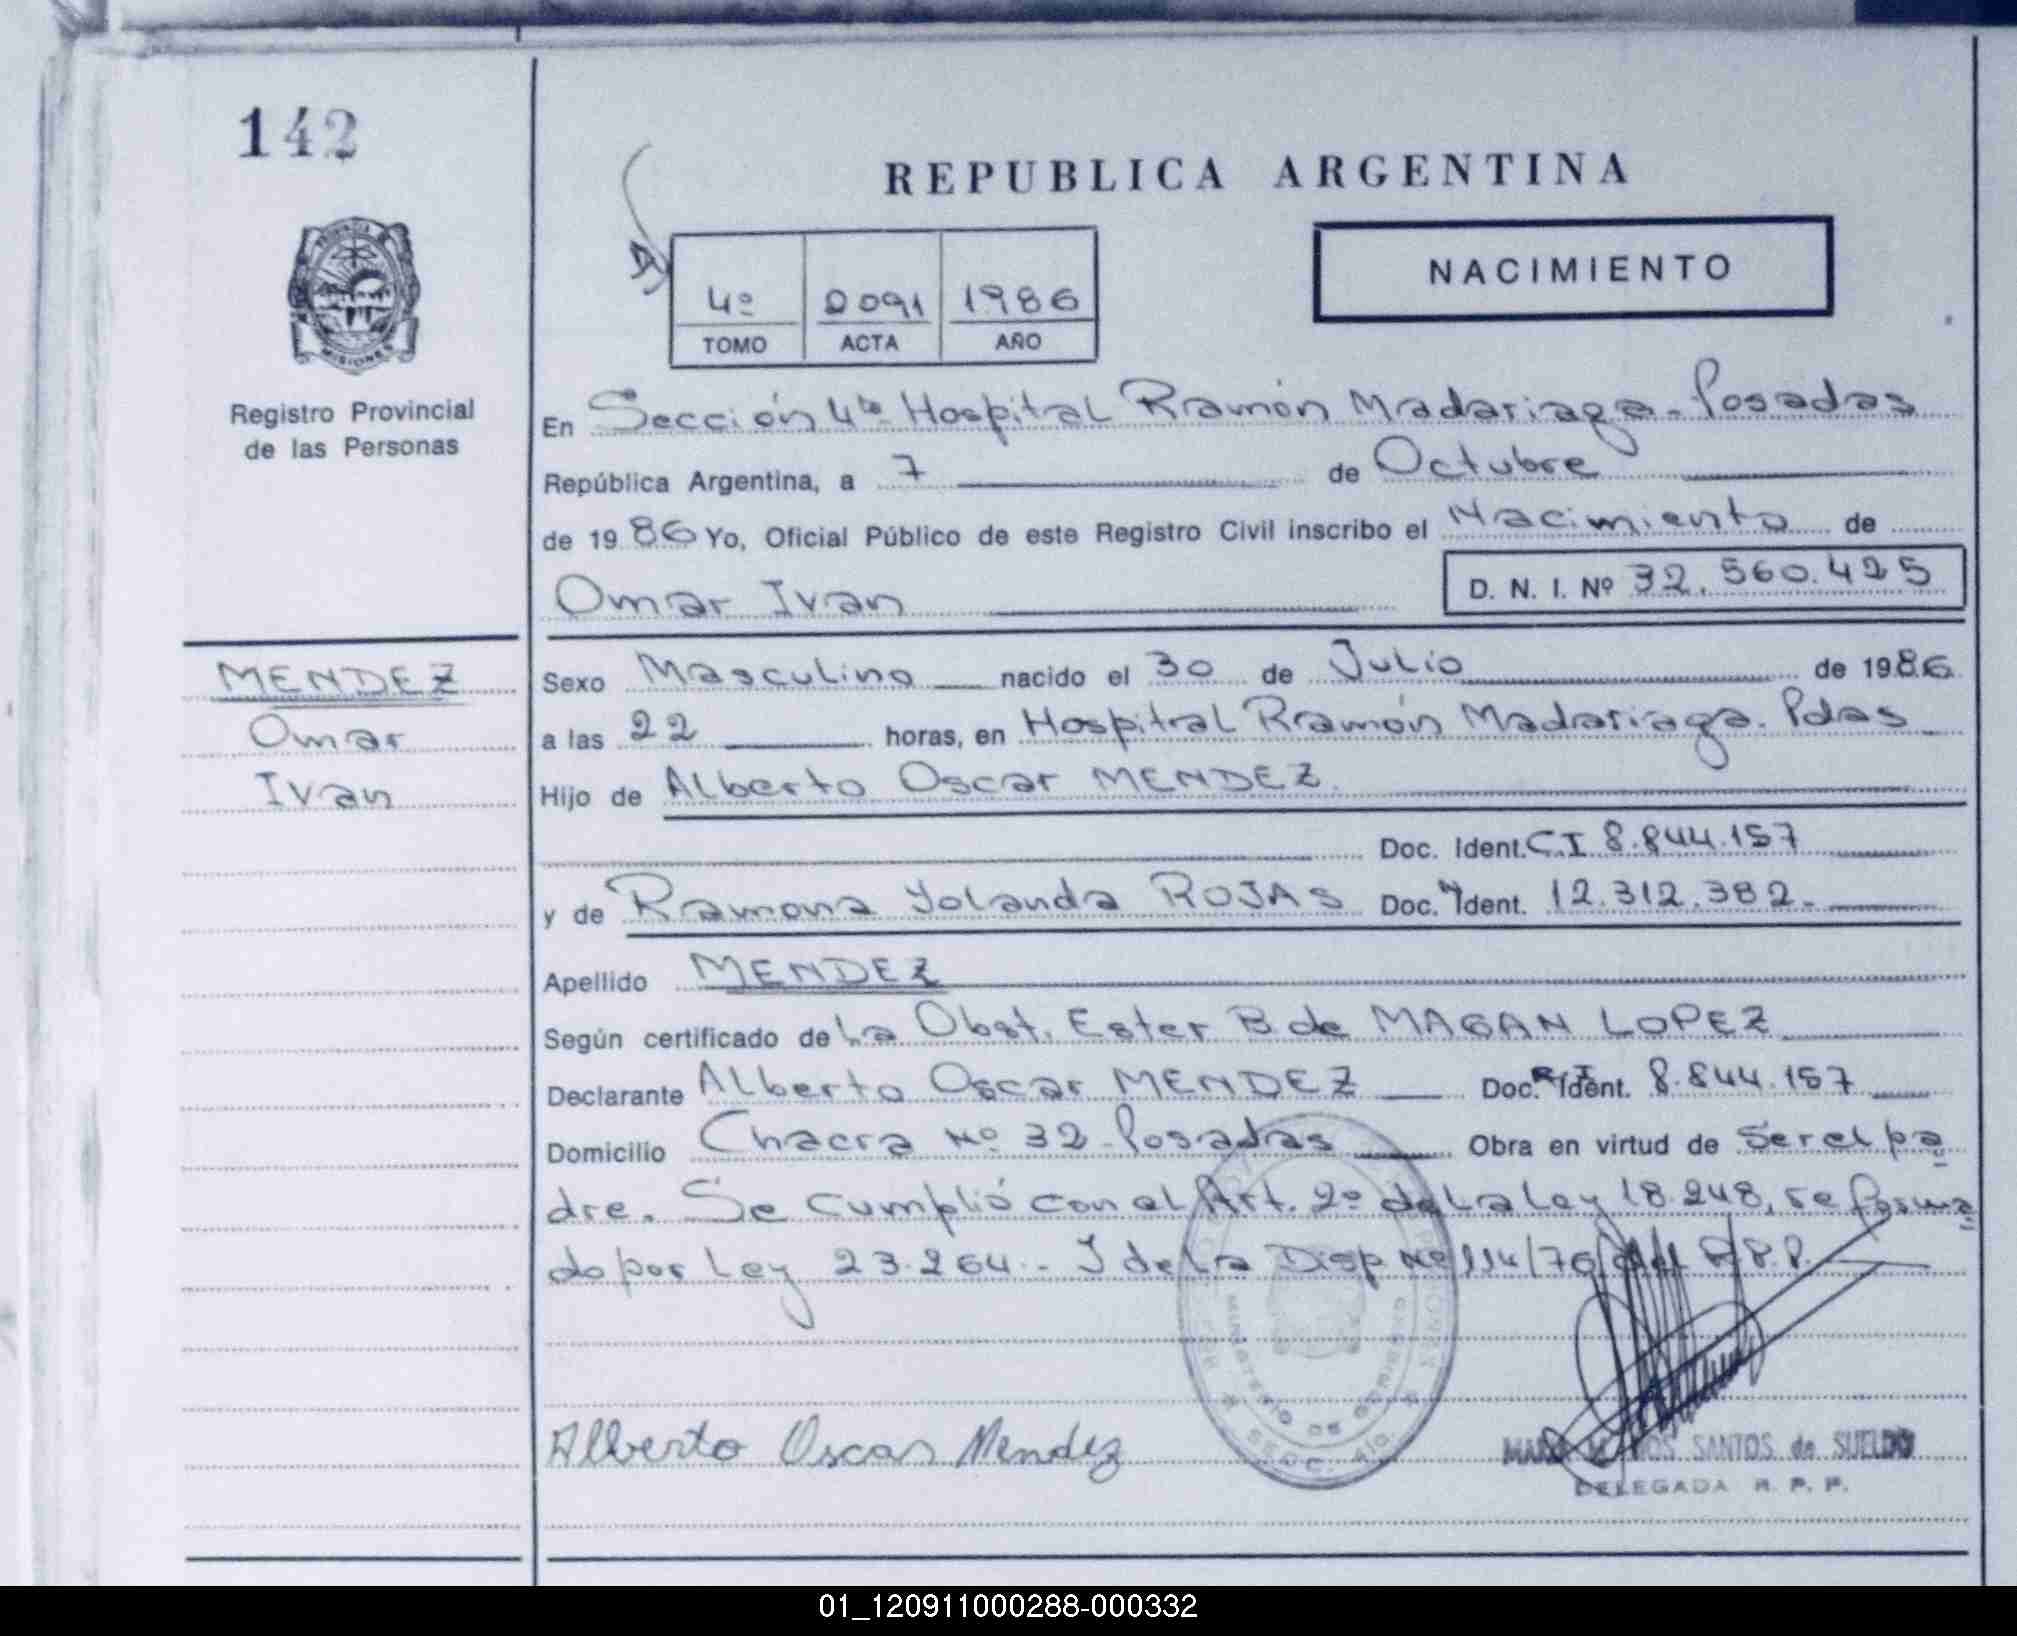 142
REPUBLICA ARGENTINA
NACIMIENTO
4º 2091 1986
TOMO ACTA AÑO
PROVINCIA DE
MISIONES
Registro Provincial
de las Personas
En Sección 4ta Hospital Ramón Madariaga - Posadas
República Argentina, a 7 de Octubre
de 1986 Yo, Oficial Público de este Registro Civil inscribo el Nacimiento de
Omar Ivan D. N. I. Nº 32.560.425
MENDEZ
Omar
Ivan
Sexo Masculino nacido el 30 de Julio de 1986
a las 22 horas, en Hospital Ramón Madariaga. Pdas
Hijo de Alberto Oscar MENDEZ.
Doc. Ident. C.I 8.844.157
y de Ramona Yolanda ROJAS Doc. Ident. 12.312.382.-
Apellido MENDEZ
Según certificado de La Obst. Ester B. de MAGAN LOPEZ
Declarante Alberto Oscar MENDEZ Doc. Ident. 8.844.157
Domicilio Chacra Nº 32 - Posadas Obra en virtud de Ser el pa
dre. Se Cumplió con el Art. 2º de la Ley 18.248, reforma
do por Ley 23.264.- Y de la Disp Nº 114/76 del R.P.P.
MINISTERIO DE GOBIERNO
SECC. 4ta.
Alberto Oscar Mendez
SANTOS de SUELDO
DELEGADA R. P. P.
01_120911000288-000332